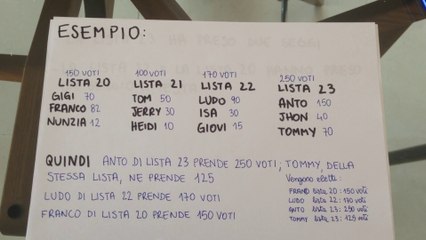 ESEMPIO:
150 VOTI 100 VOTI 170 VOTI 250 VOTI
LISTA 20 LISTA 21 LISTA 22 LISTA 23
GIGI 70 TOM 50 LUDO 90 ANTO 150
FRANCO 82 JERRY 30 ISA 30 JHON 40
NUNZIA 12 HEIDI 10 GIOVI 15 TOMMY 70
QUINDI ANTO DI LISTA 23 PRENDE 250 VOTI; TOMMY DELLA
STESSA LISTA, NE PRENDE 125
LUDO DI LISTA 22 PRENDE 170 VOTI
FRANCO DI LISTA 20 PRENDE 150 VOTI
Vengono eletti:
FRANCO lista 20: 150 voti
LUDO lista 22: 170 voti
ANTO lista 23: 250 voti
TOMMY lista 23: 125 voti